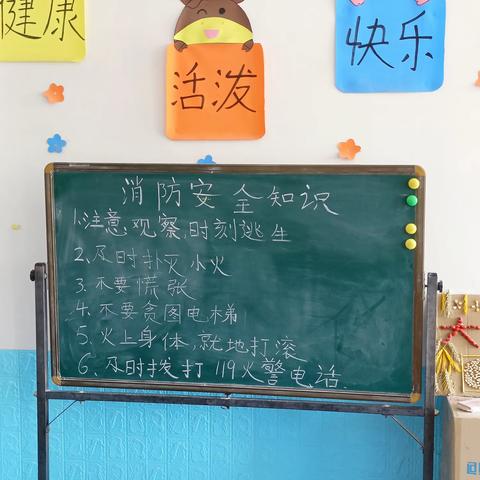 健康
活泼
快乐
消防安全知识
1.注意观察,时刻逃生
2、及时扑灭小火
3、不要慌张
4、不要贪图电梯
5、火上身体,就地打滚
6、及时拨打119火警电话.